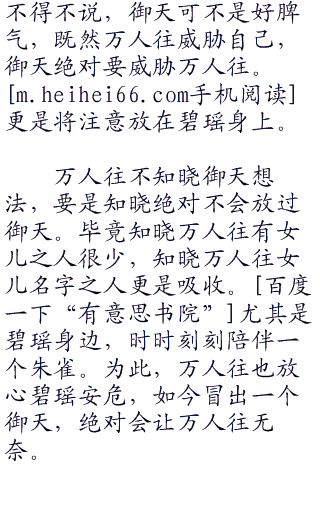 不得不说，御天可不是好脾
气，既然万人往威胁自己，
御天绝对要威胁万人往。
[m.heihei66.com手机阅读]
更是将注意放在碧瑶身上。
万人往不知晓御天想
法，要是知晓绝对不会放过
御天。毕竟知晓万人往有女
儿之人很少，知晓万人往女
儿名字之人更是吸收。[百度
一下“有意思书院”]尤其是
碧瑶身边，时时刻刻陪伴一
个朱雀。为此，万人往也放
心碧瑶安危，如今冒出一个
御天，绝对会让万人往无
奈。